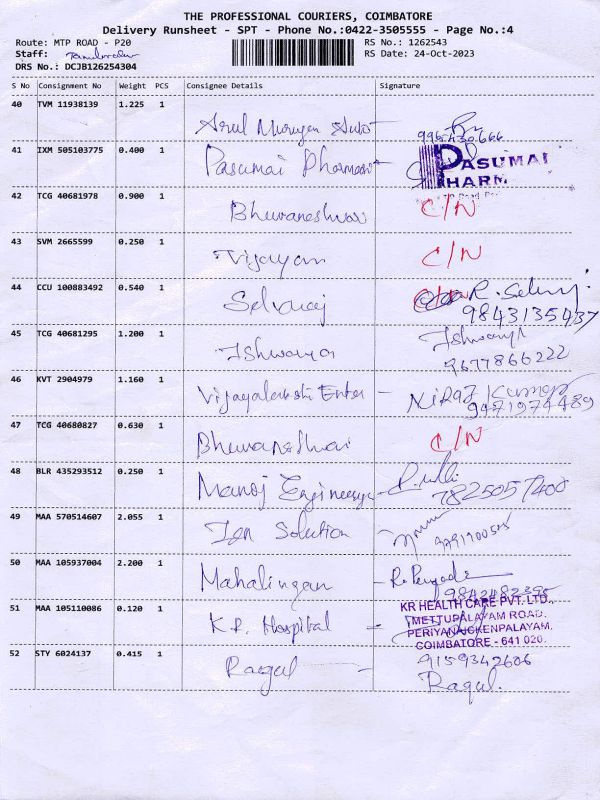 THE PROFESSIONAL COURIERS, COIMBATORE
Delivery Runsheet - SPT - Phone No.:0422-3505555 - Page No.:4
Route: MTP ROAD - P20
RS No.: 1262543
Staff:
RS Date: 24-Oct-2023
DRS No.: DCJB126254304
S No Consignment No Weight PCS Consignee Details Signature
40 TVM 11938139 1.225 1
Arul Murugan Auto
41 IXM 505103775 0.400 1
Pasumai Pharma
PASUMAI
PHARM
42 TCG 40681978 0.900 1
Bhuvaneshwari C/N
43 SVM 2665599 0.250 1
Vijayan C/N
44 CCU 100883492 0.540 1
Selvaraj R. Selvaraj
9843135437
45 TCG 40681295 1.200 1
Ishwarya Ishwarya
9677866222
46 KVT 2904979 1.160 1
Vijayalakshi Enter - Niraj Kumar
9471974489
47 TCG 40680827 0.630 1
Bhuvaneshwari C/N
48 BLR 435293512 0.250 1
Manoj Engineering -
7825057400
49 MAA 570514607 2.055 1
Solution
50 MAA 105937004 2.200 1
Mahalingan -
9842482395
51 MAA 105110086 0.120 1
K.R. Hospital -
KR HEALTH CARE PVT. LTD.,
METTUPALAYAM ROAD,
PERIYANAICKENPALAYAM,
COIMBATORE - 641 020.
52 STY 6024137 0.415 1
9159342606
Ragul - Ragul.